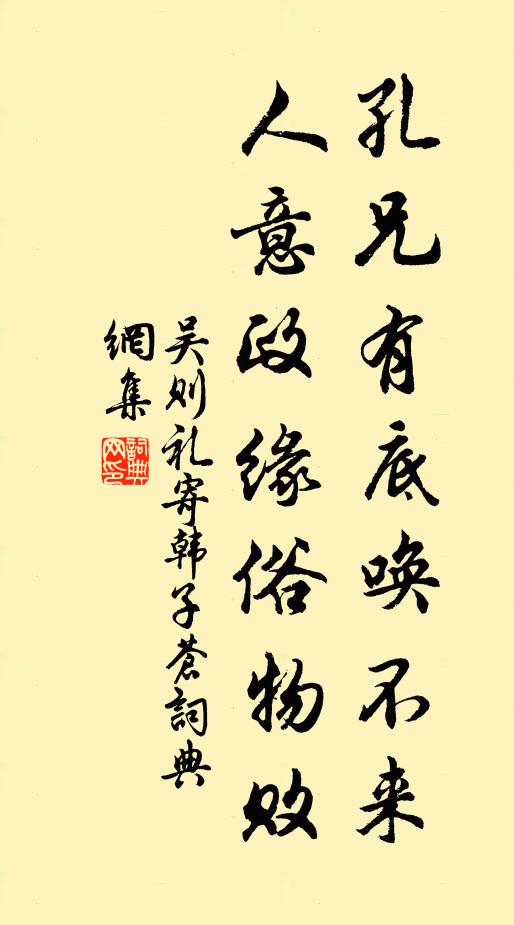 孔兄有底唤不来
人意政缘俗物败
吴则礼寄韩子苍詞典
網集
詞典網印